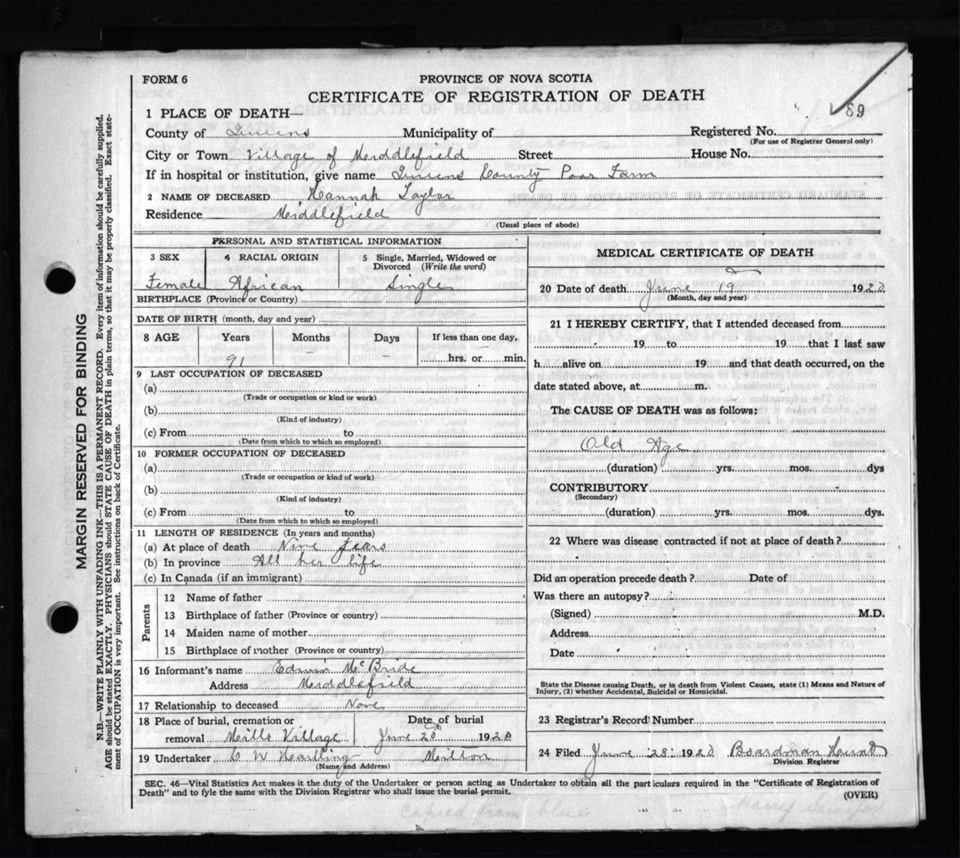 FORM 6
PROVINCE OF NOVA SCOTIA
CERTIFICATE OF REGISTRATION OF DEATH
89
1 PLACE OF DEATH—
County of Queens Municipality of Registered No.
(For use of Registrar General only)
City or Town Village of Middlefield Street House No.
If in hospital or institution, give name Queens County Poor Farm
2 NAME OF DECEASED Hannah Taylor
Residence Middlefield
(Usual place of abode)
PERSONAL AND STATISTICAL INFORMATION
3 SEX 4 RACIAL ORIGIN 5 Single, Married, Widowed or Divorced (Write the word)
Female African Single
BIRTHPLACE (Province or Country)
DATE OF BIRTH (month, day and year)
8 AGE Years Months Days If less than one day,
91 - - hrs. or min.
9 LAST OCCUPATION OF DECEASED
(a)
(Trade or occupation or kind or work)
(b)
(Kind of industry)
(c) From to
(Date from which to which so employed)
10 FORMER OCCUPATION OF DECEASED
(a)
(Trade or occupation or kind of work)
(b)
(Kind of industry)
(c) From to
(Date from which to which so employed)
11 LENGTH OF RESIDENCE (In years and months)
(a) At place of death Nine Years
(b) In province All her life
(c) In Canada (if an immigrant)
Parents
12 Name of father
13 Birthplace of father (Province or country)
14 Maiden name of mother
15 Birthplace of mother (Province or country)
16 Informant's name Edwin McBride
Address Middlefield
17 Relationship to deceased None
18 Place of burial, cremation or removal Mills Village
Date of burial June 1928
19 Undertaker C W Harding Milton
(Name and Address)
MEDICAL CERTIFICATE OF DEATH
20 Date of death June 19 1928
(Month, day and year)
21 I HEREBY CERTIFY, that I attended deceased from
19 to 19 that I last saw
h alive on 19 and that death occurred, on the
date stated above, at m.
The CAUSE OF DEATH was as follows:
Old Age
(duration) yrs. mos. dys
CONTRIBUTORY
(Secondary)
(duration) yrs. mos. dys.
22 Where was disease contracted if not at place of death?
Did an operation precede death? Date of
Was there an autopsy?
(Signed) M.D.
Address
Date
State the Disease causing Death, or in death from Violent Causes, state (1) Means and Nature of
Injury, (2) whether Accidental, Suicidal or Homicidal.
23 Registrar's Record Number
24 Filed June 28 1928 Boardman
Division Registrar
SEC. 46—Vital Statistics Act makes it the duty of the Undertaker or person acting as Undertaker to obtain all the particulars required in the "Certificate of Registration of
Death" and to fyle the same with the Division Registrar who shall issue the burial permit.
(OVER)
copied from blue
MARGIN RESERVED FOR BINDING
N.B.—WRITE PLAINLY WITH UNFADING INK—THIS IS A PERMANENT RECORD. Every item of information should be carefully supplied.
AGE should be stated EXACTLY. PHYSICIANS should STATE CAUSE OF DEATH in plain terms, so that it may be properly classified. Exact state-
ment of OCCUPATION is very important. See instructions on back of Certificate.